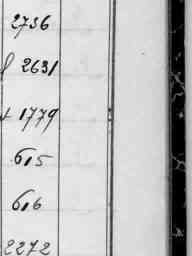 2736
2631
1779
615
616
2272